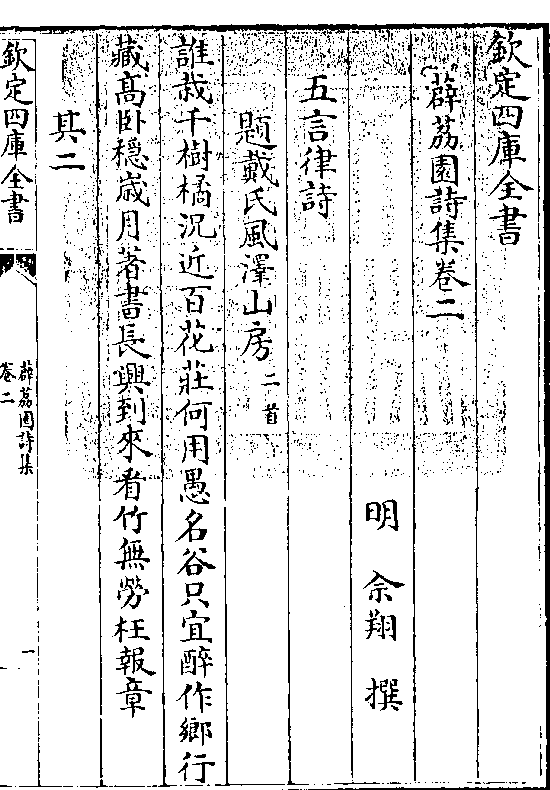 欽定四庫全書
薜荔園詩集卷二
明 佘翔 撰
五言律詩
題戴氏風澤山房二首
誰栽千樹橘況近百花莊何用愚名谷只宜醉作鄉行
藏高卧穏歲月著書長興到來看竹無勞枉報章
其二
欽定四庫全書
薜荔園詩集
卷二
一